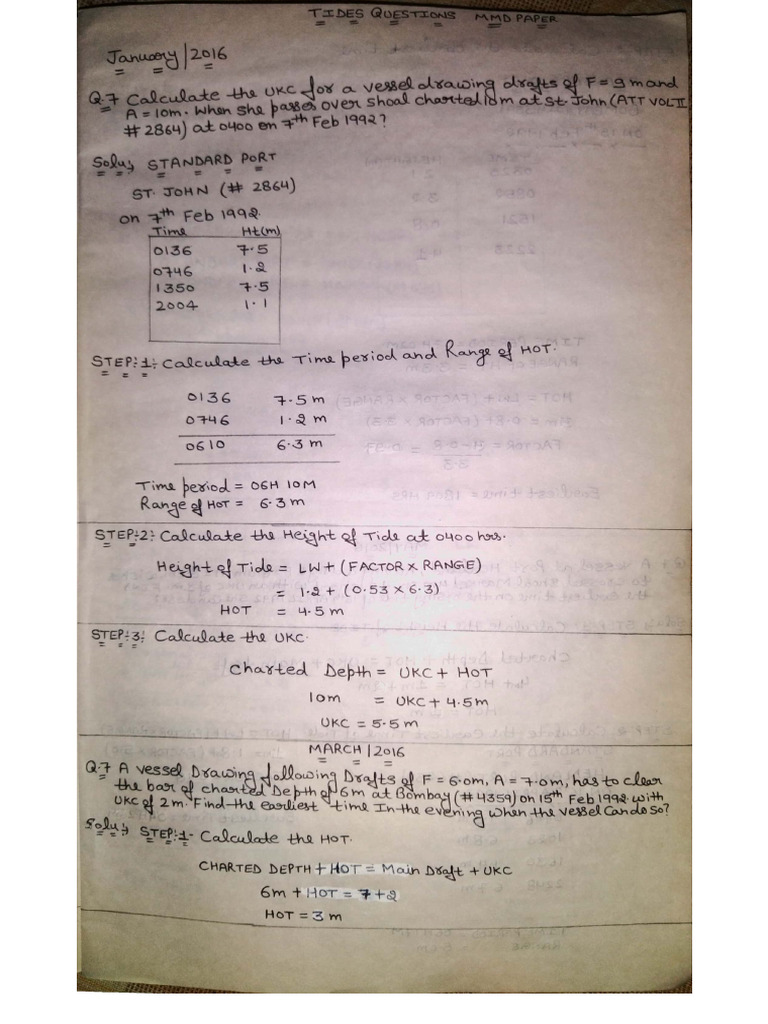 TIDES QUESTIONS MMD PAPER
January/2016
Q.7 Calculate the UKC for a vessel drawing drafts of F = 9m and
A = 10m. When she passes over shoal charted 10m at St. John (ATT VOL II
# 2864) at 0400 on 7th Feb 1992?
Solu; STANDARD PORT
ST. JOHN (# 2864)
on 7th Feb 1992.
Time Ht(m)
0136 7.5
0746 1.2
1350 7.5
2004 1.1
STEP:1: Calculate the Time period and Range of HOT.
0136 7.5 m
0746 1.2 m
0610 6.3 m
Time period = 06H 10M
Range of HOT = 6.3 m
STEP:2: Calculate the Height of Tide at 0400 hrs.
Height of Tide = LW + (FACTOR X RANGE)
= 1.2 + (0.53 X 6.3)
HOT = 4.5 m
STEP:3: Calculate the UKC.
Charted Depth = UKC + HOT
10m = UKC + 4.5m
UKC = 5.5 m
MARCH/2016
Q.7 A vessel Drawing following Drafts of F = 6.0m, A = 7.0m, has to clear
the bar of charted Depth of 6m at Bombay (# 4359) on 15th Feb 1992 with
UKC of 2m. Find the earliest time In the evening when the vessel Can do so?
Solu; STEP:1- Calculate the HOT.
CHARTED DEPTH + HOT = Main Draft + UKC
6m + HOT = 7+2
HOT = 3 m